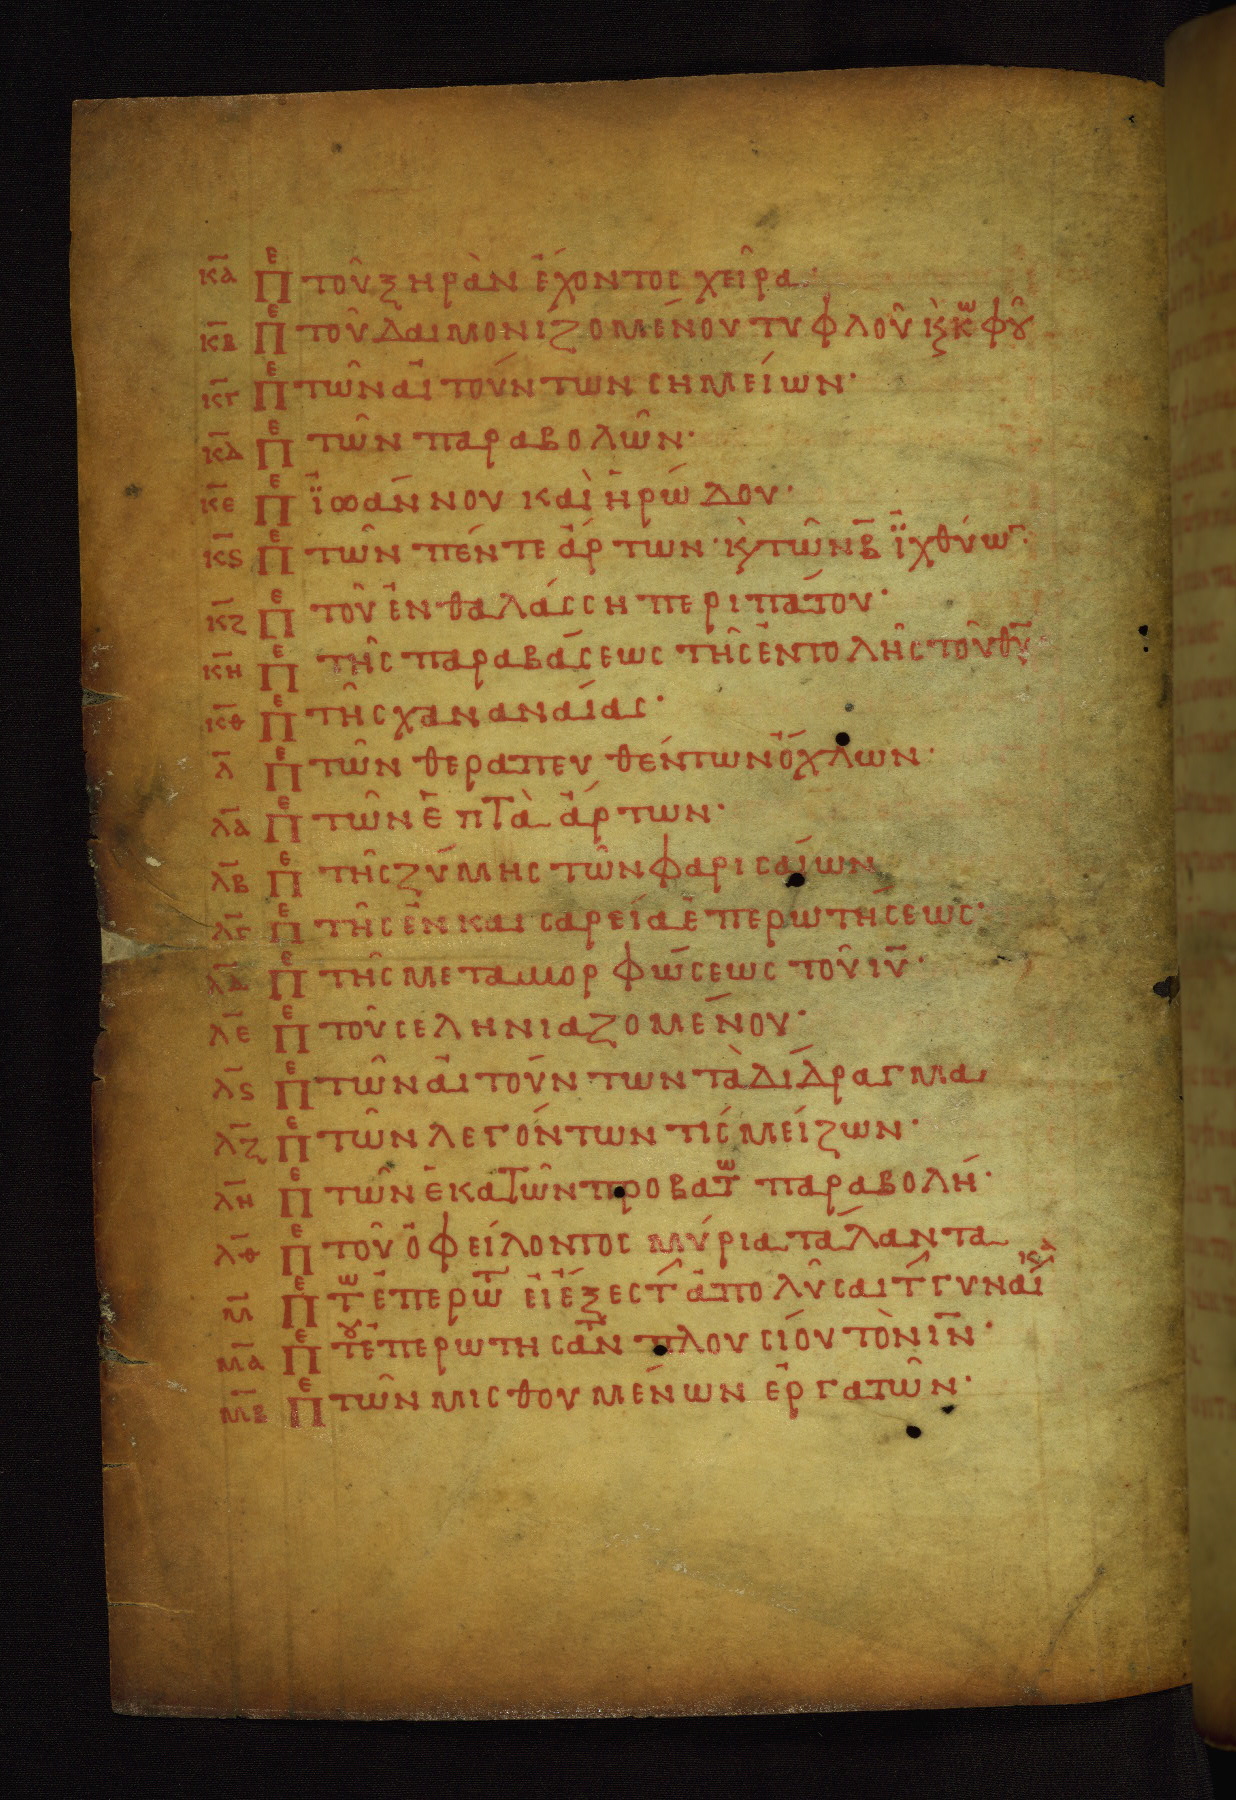 κα Πε τοῦ ξηρὰν ἔχοντος χεῖρα·
κβ Πε τοῦ δαιμονιζομένου τυφλοῦ κ̀ κω φου
κγ Πε τῶν αἰτούντων σημείων·
κδ Πε τῶν παραβολῶν·
κε Πε ἰωάννου καὶ ἡρώδου·
κϛ Πε τῶν πέντε ἄρτων· κ̀ τῶν β̄ ἰχθύω·
κζ Πε τοῦ ἐν θαλάσση περιπάτου·
κη Πε τῆς παραβάσεως τῆς ἐντολῆς τοῦ θ̅υ̅
κθ Πε τῆς χαναναίας·
λ Πε τῶν θεραπευθέντων ὄχλων·
λα Πε τῶν ἑπτὰ ἄρτων·
λβ Πε τῆς ζύμης τῶν φαρισαίων
λγ Πε τῆς ἐν καισαρεία ἐπερωτήσεως·
λδ Πε τῆς μεταμορφώσεως τοῦ ι̅υ̅·
λε Πε τοῦ σεληνιαζομένου·
λϛ Πε τῶν αἰτούντων τὰ δίδραγμα
λζ Πε τῶν λεγόντων τίς μείζων·
λη Πε τῶν ἑκατῶν προβατω παραβολή·
λθ Πε τοῦ ὀφείλοντος μύρια τάλαντα
μ Πε τω ἐπερωτ εἰ ἔξεστ ἀπολῦσαι τ γυναῖκα
μα Πε του ἐπερωτήσαντ πλουσίου τὸν ι̅ν̅·
μβ Πε τῶν μισθουμένων ἐργατῶν·